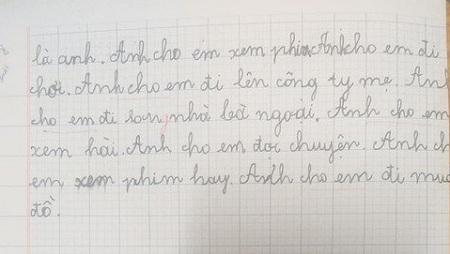 là anh. Anh cho em xem phim Anh cho em đi
chơi. Anh cho em đi lên công ty mẹ. Anh
cho em đi sang nhà bà ngoại. Anh cho em
xem hài. Anh cho em đọc chuyện. Anh ch
em xem phim hay. Anh cho em đi mua
đồ.